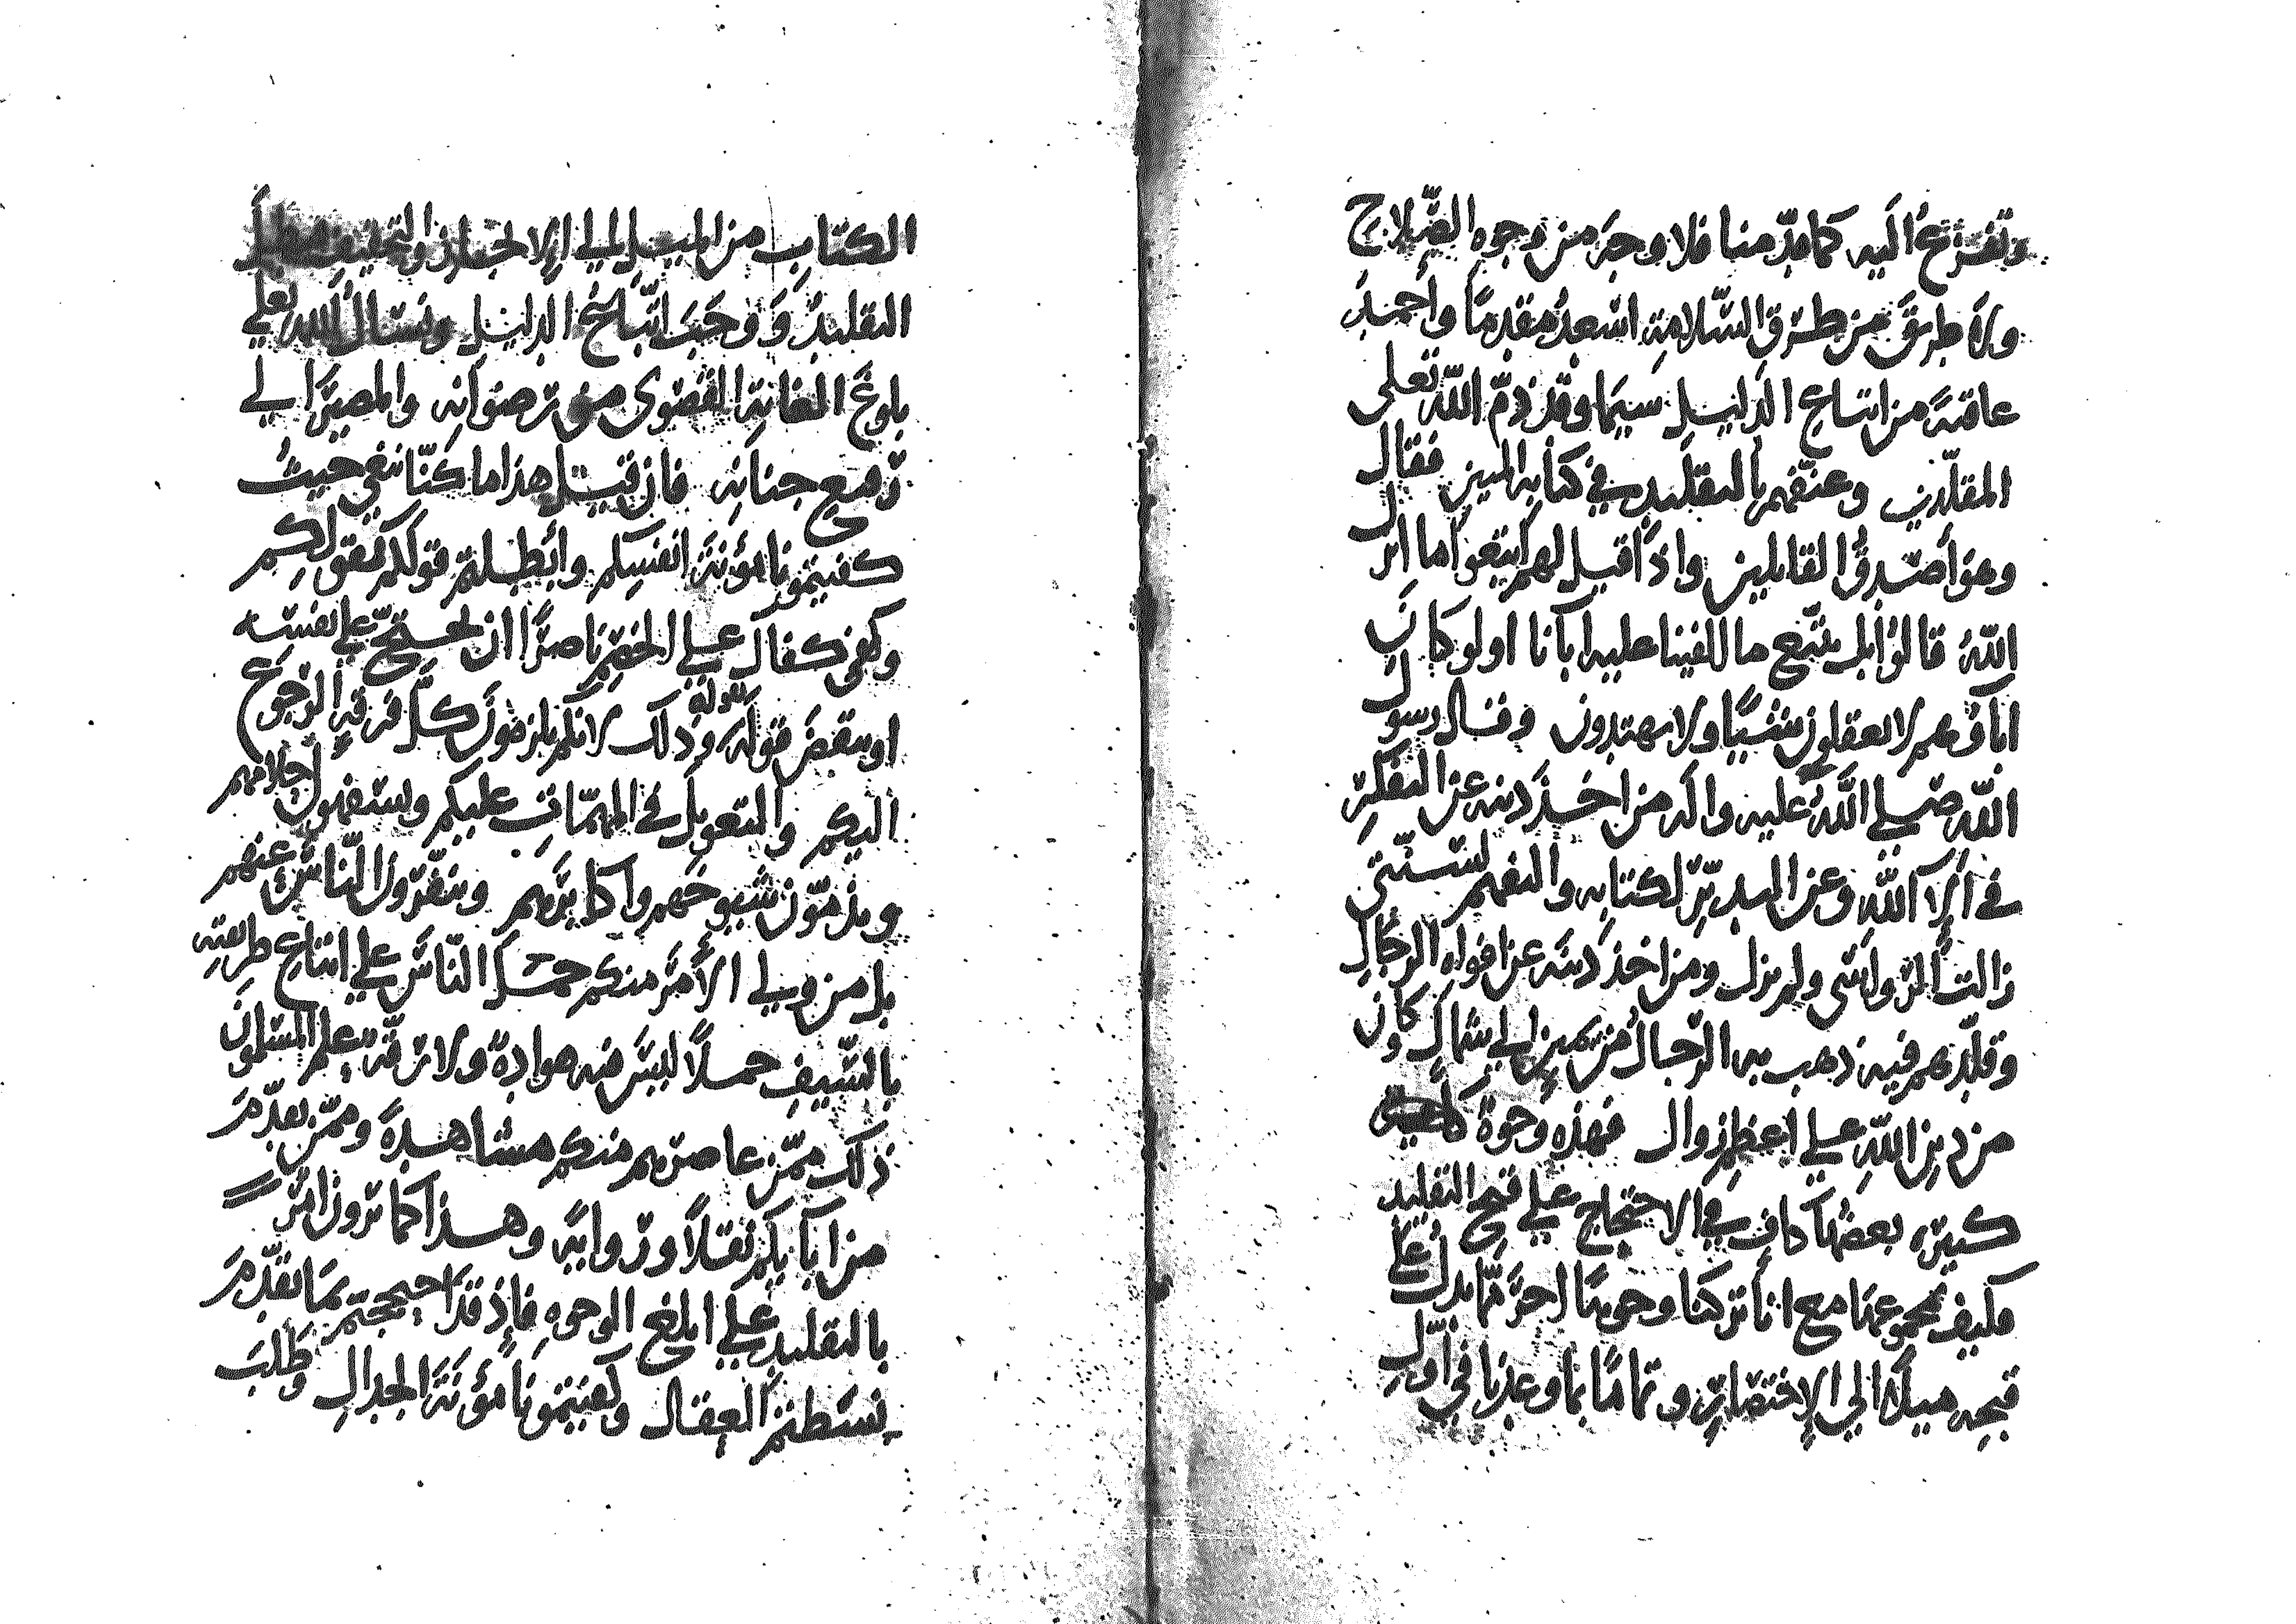 ونفزع اليه كما قدمنا فلا وجه من وجوه الصلاح
ولا طريق من طرق السلامة اسعد مقدما واحمد
عاقبة من اتباع الدليل سيما وقد ذم الله تعلى
المقلدين وعنفهم بالتقليد في كتابه المبين فقال
وهو أصدق القايلين واذا قيل لهم اتبعوا ما انزل
الله قالوا بل نتبع ما الفينا عليه ابآنا اولو كان
اباؤهم لا يعقلون شيئا ولا يهتدون وقال رسول
الله صلى الله عليه واله من اخذ دينه عن التفكر
في آلآ الله وعن التدبر لكتابه والتفهم لسنتي
زالت الرواسي ولم يزل ومن اخذ دينه عن افواه الرجال
وقلدهم فيه ذهب به الرجال من يمين الى شمال وكان
من دين الله على اعظم زوال فهذه وجوه
كثيره بعضها كاف في الاحتجاج على قبح التقليد
فكيف مجموعها مع انا تركنا وجوها اخر مما يدل على
قبحه ميلا الى الإختصار وتماما بما وعدنا في اول
الكتاب من الميل الى الإختصار والتخفيف
التقليد ووجب اتباع الدليل ونسال الله تعلى
بلوغ الغاية القصوى من رضوانه والمصير الى
رفيع جنانه فان قيل هذا ما كنا نبغي حيث
كفيتمونا مؤنة انفسكم وابطلتم قولكم بقولكم
وكفى كفال على الخصم ناصرا ان يحتج على نفسه
او ينقض قوله وذلك لانكم تلزمون كل فرقة الرجوع
اليكم والتعويل في المهمات عليكم وتسفهون احلامهم
وتذمون شيوخهم واكابرهم وتنفرون الناس عنهم
بل من ولي الأمر منكم حمل الناس على اتباع طريقته
بالسيف حملا ليس فيه هوادة ولا رقة يعلم المسلمون
ذلك ممن عاصرهم منكم مشاهدة وممن تقدم
من آبايكم نقلا ورواية وهذا كما ترون امر
بالتقليد على ابلغ الوجوه فإذ قد احججتم بما تقدم
نشطتم العقال وكفيتمونا مؤنة الجدال وطلب